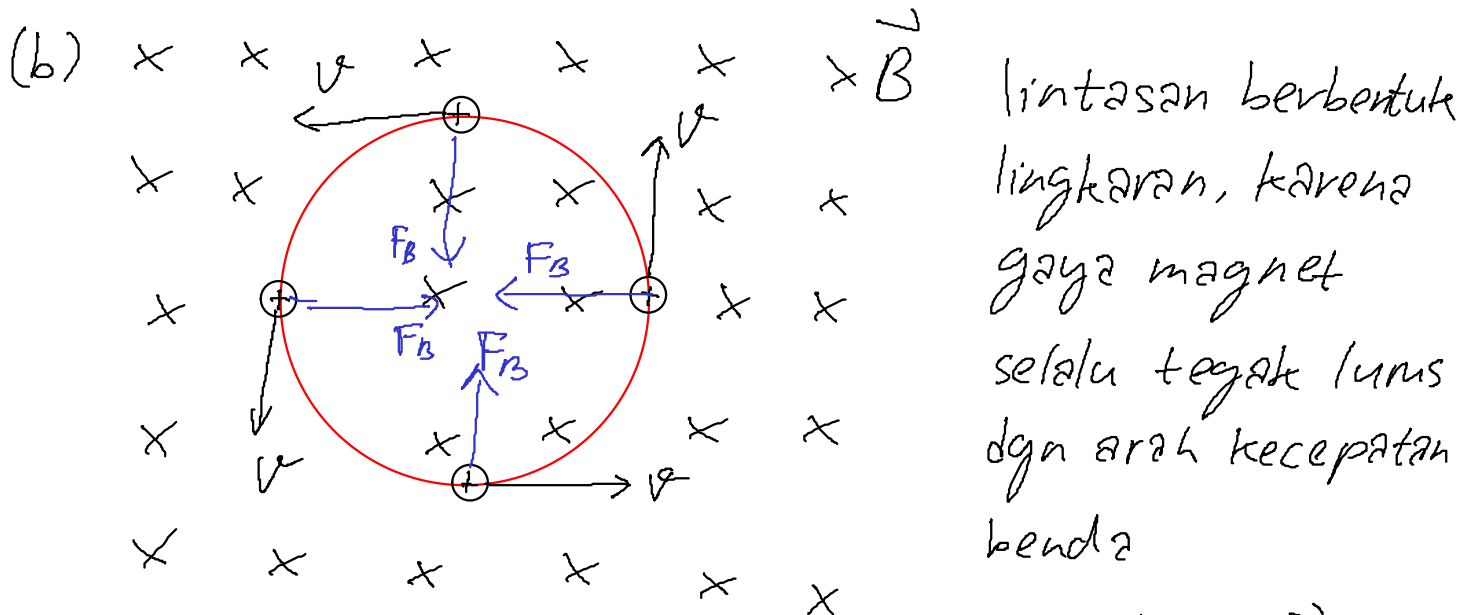 (b)
B
v
v
F_B
F_B
F_B
F_B
v
v
lintasan berbentuk
lingkaran, karena
gaya magnet
selalu tegak lurus
dgn arah kecepatan
benda